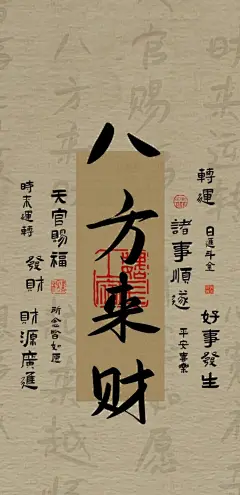 八方来财
轉運
日進斗金
諸事順遂
平安喜樂
好事發生
天官賜福
所念皆如愿
時来運轉
發財
財源廣進